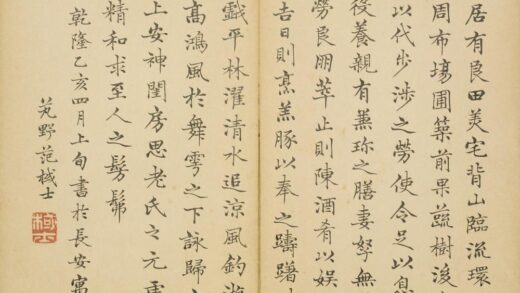 居有良田美宅背山臨流環
周布塲圃築前果蔬樹後
以代步涉之勞使令足以息
役養親有蒹珎之膳妻孥無
勞良朋萃止則陳酒肴以娱
吉日則烹羔豚以奉之躊躇
戲平林濯清水追涼風釣游
高鴻風於舞雩之下詠歸
上安神閨房思老氏之元虛
精和求至人之髣髴
乾隆乙亥四月上旬書於長安寓
范棫士